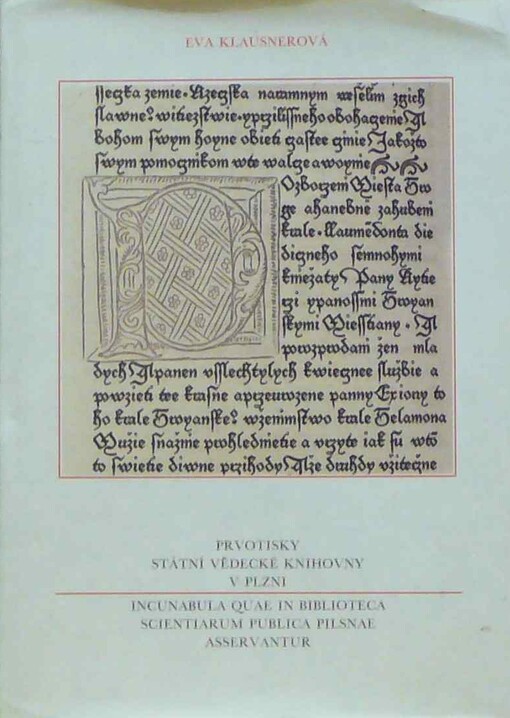 EVA KLAUSNEROVÁ
sseczka zemie. Rzeczska naramnym weselim zgich
slawne? witiezstwie. yprzilissneho obohagenie Il
bohom swym hoyne obieti gastee cznie, Jakozto
swym pomocznikom wte walcze a woynie
Ozborzem Miesta Tro
ge ahanebne zahubeni
krale. Laumedonta die
diczneho semnohymi
kniezaty, Pany Rytie
rzi ypanossmi Troyan
skymi Miesstiany. Il
porozprodani zen mla
dych Ilpanen vsslechtylych kwiecznee sluzbie a
powzieti tee krasne aprzeurozene panny Exiony to
ho krale Troyanske? wzenimstwo krale Thelamona
Muzie snaznie prohlednutie a vrzyte iak su wto
to swietie diwne przihody, Ilze druhdy vziteczne
PRVOTISKY
STÁTNÍ VĚDECKÉ KNIHOVNY
V PLZNI
INCUNABULA QUAE IN BIBLIOTECA
SCIENTIARUM PUBLICA PILSNAE
ASSERVANTUR